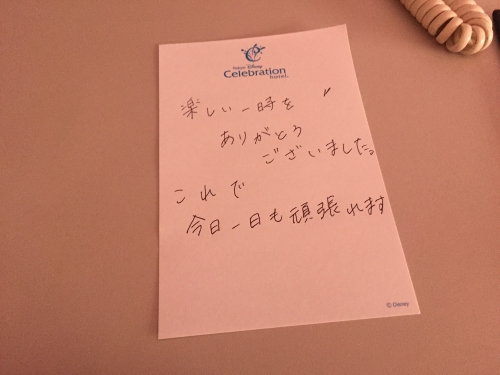 Tokyo Disney
Celebration
hotel
楽しい一時を
ありがとう
ございました。
これで
今日一日も頑張れます
© Disney